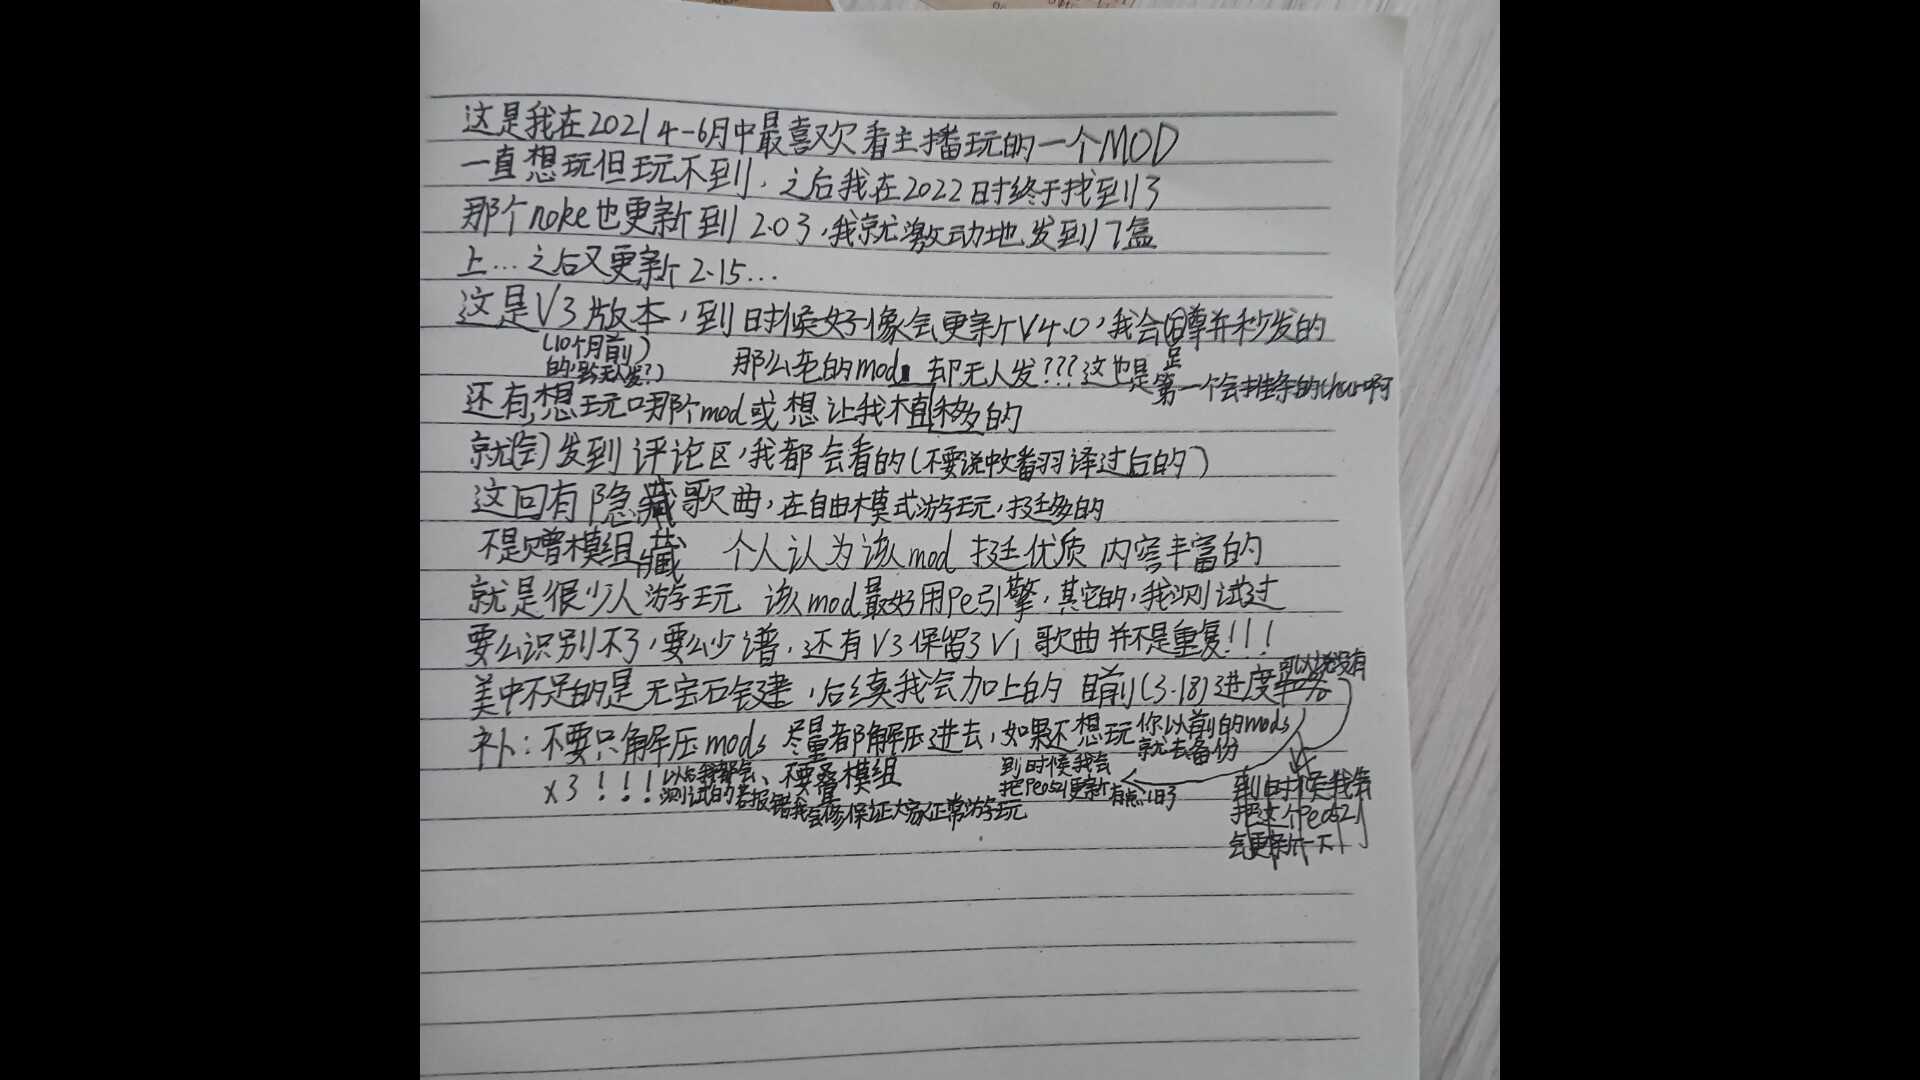 这是我在2021 4-6月中最喜欢看主播玩的一个MOD
一直想玩但玩不到，之后我在2022时终于找到了
那个noke也更新到2.03，我就激动地发到7盒
上…之后又更新2.15…
这是V3版本，到时候好像会更新V4.0，我会蹲并秒发的
(10个月前)
那么老的mod 却无人发???这也是
第一个会推条的char啊
还有，想玩哪个mod或想让我植移的
就(会)发到评论区，我都会看的(不要说中文翻译过后的)
这回有隐藏歌曲，在自由模式游玩，挺多的
不是赠模组 藏 个人认为该mod 挺优质 内容丰富的
就是很少人游玩 该mod最好用Pe引擎，其它的，我测试过
要么识别不了，要么少谱，还有V3保留了V1歌曲并不是重复!!!
美中不足的是无宝石按建，后续我会加上的 目前(3.18)进度
补：不要只解压mods 尽量都解压进去，如果不想玩你以前的mods
就去备份
x3!!! 以后我都会、不要叠模组
测试的若报错我会修保证大家正常游玩
到时候我会
把Pe0521更新有点旧了
到时候我会
把这个Pe0521
会更新一下